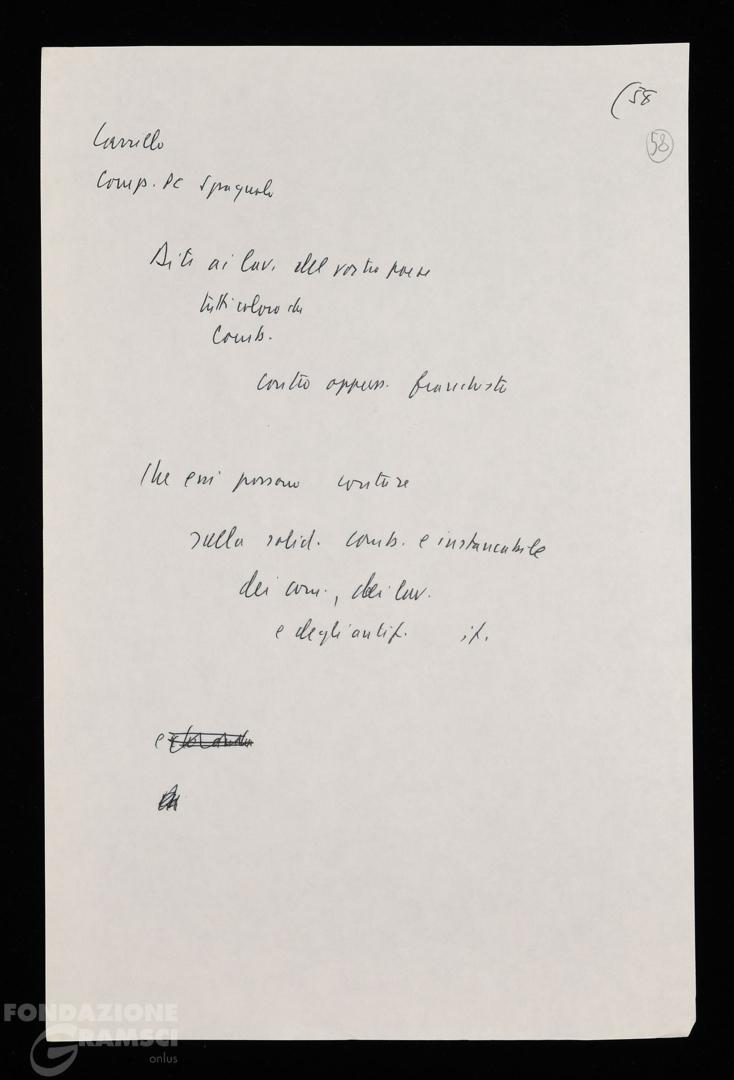 (58
58
Carrillo
Comp. PC Spagnolo
Dite ai lav. del vostro paese
tutti coloro che
Comb.
contro oppress. franchista
Che essi possono contare
sulla solid. comb. e instancabile
dei com., dei lav.
e degli antif. it.
e
FONDAZIONE
GRAMSCI
onlus